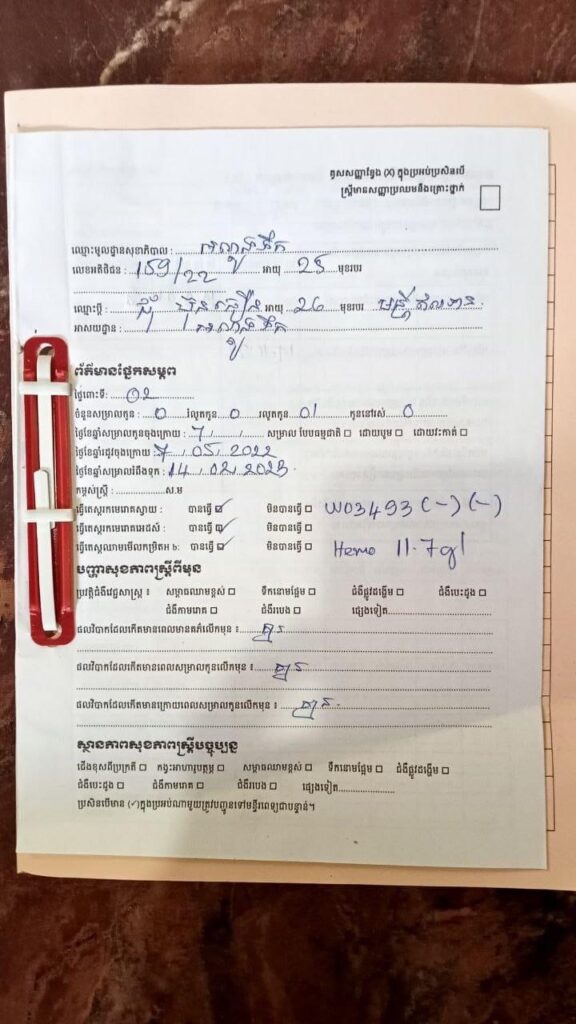 គូសសញ្ញាខ្វែង (X) ក្នុងប្រអប់ប្រសិនបើ
ស្ត្រីមានសញ្ញាប្រឈមនឹងគ្រោះថ្នាក់
ឈ្មោះមូលដ្ឋានសុខាភិបាល :
លេខអតិថិជន : 159/22 អាយុ 25 មុខរបរ
ឈ្មោះប្តី : អាយុ 26 មុខរបរ
អាសយដ្ឋាន :
ព័ត៌មានផ្នែកសម្ភព
ផ្ទៃពោះទី: 02
ចំនួនសម្រាលកូន : 0 រំលូតកូន 0 រលូតកូន 01 កូននៅរស់ 0
ថ្ងៃខែឆ្នាំសម្រាលកូនចុងក្រោយ : សម្រាល បែបធម្មជាតិ ដោយបូម ដោយវះកាត់
ថ្ងៃខែឆ្នាំរដូវចុងក្រោយ : 7 / 05 / 2022
ថ្ងៃខែឆ្នាំសម្រាលរំពឹងទុក : 14 / 02 / 2023
កម្ពស់ស្ត្រី : ស.ម
ធ្វើតេស្តរកមេរោគស្វាយ : បានធ្វើ ✓ មិនបានធ្វើ W03493 (-) (-)
ធ្វើតេស្តរកមេរោគអេដស៍ : បានធ្វើ ✓ មិនបានធ្វើ
ធ្វើតេស្តឈាមមើលកម្រិតអ b: បានធ្វើ ✓ មិនបានធ្វើ Hemo 11.7gl
បញ្ហាសុខភាពស្ត្រីពីមុន
ប្រវត្តិជំងឺវេជ្ជសាស្ត្រ ៖ សម្ពាធឈាមខ្ពស់ ទឹកនោមផ្អែម ជំងឺផ្លូវដង្ហើម ជំងឺបេះដូង
ជំងឺកាមរោគ ជំងឺរបេង ផ្សេងទៀត
ផលវិបាកដែលកើតមានពេលមានគភ៌លើកមុន ៖ គ្មាន
ផលវិបាកដែលកើតមានពេលសម្រាលកូនលើកមុន ៖ គ្មាន
ផលវិបាកដែលកើតមានក្រោយពេលសម្រាលកូនលើកមុន ៖ គ្មាន
ស្ថានភាពសុខភាពស្ត្រីបច្ចុប្បន្ន
ជើងខុសពីប្រក្រតី កង្វះអាហារូបត្ថម្ភ សម្ពាធឈាមខ្ពស់ ទឹកនោមផ្អែម ជំងឺផ្លូវដង្ហើម
ជំងឺបេះដូង ជំងឺកាមរោគ ជំងឺរបេង ផ្សេងទៀត
ប្រសិនបើមាន (✓) ក្នុងប្រអប់ណាមួយត្រូវបញ្ជូនទៅមន្ទីរពេទ្យជាបន្ទាន់។